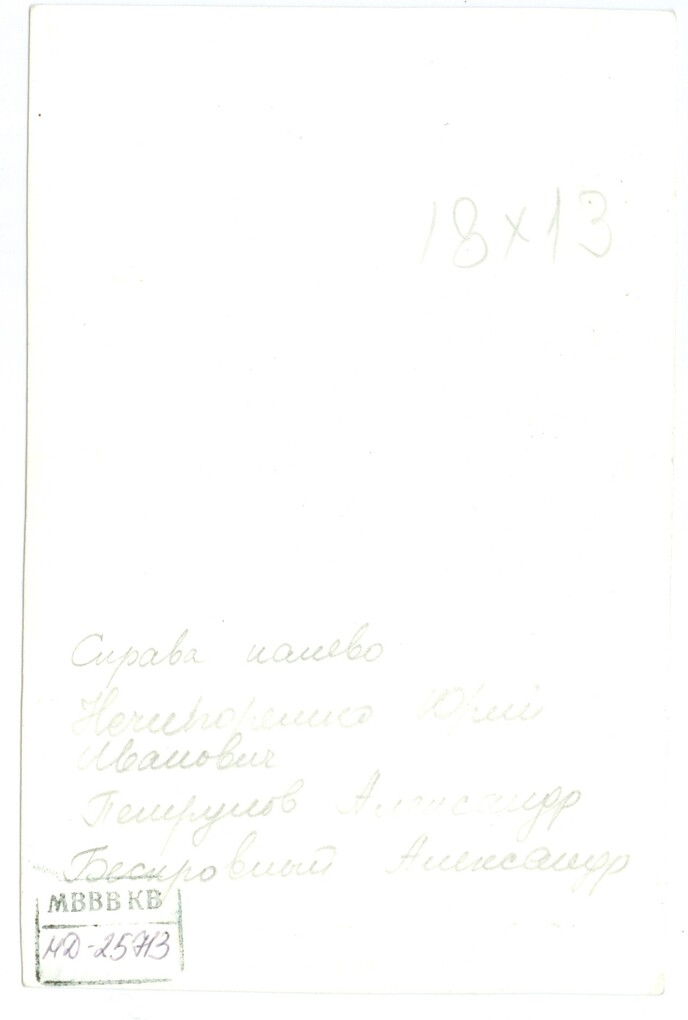 18х13
Справа налево
Нечипоренко Юрий
Иванович
Петрунов Александр
Бескровный Александр
МВВВ КВ
НД-25713